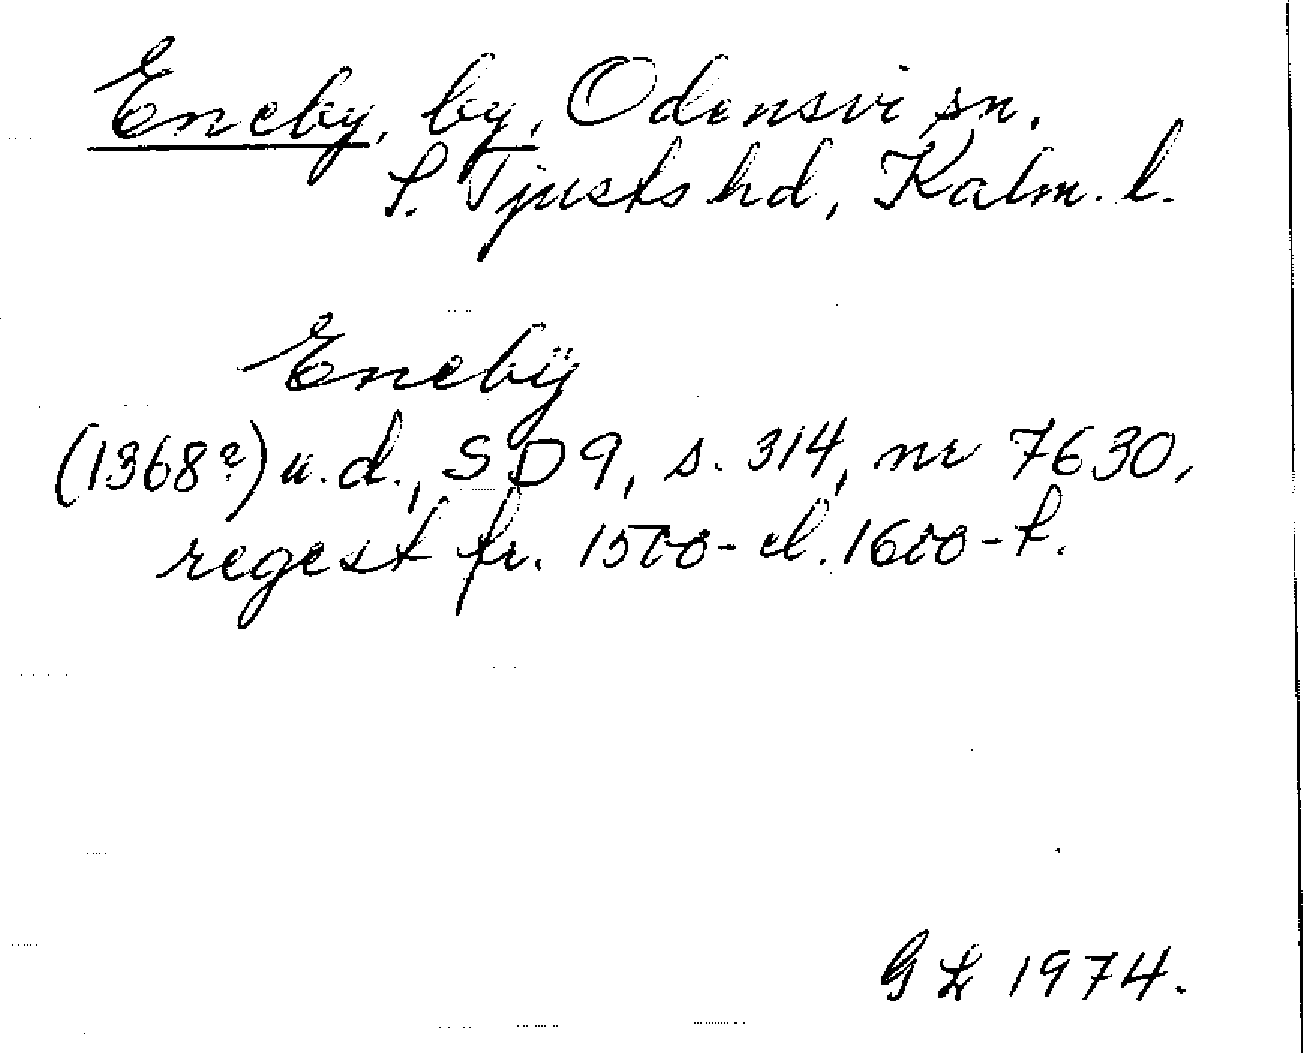 Eneby, by, Odensvi sn.
S. Tjusts hd, Kalm. l.
Enebÿ
(1368?) u.d., SD 9, s. 314, nr 7630,
regest fr. 1500- el. 1600-t.
GL 1974.